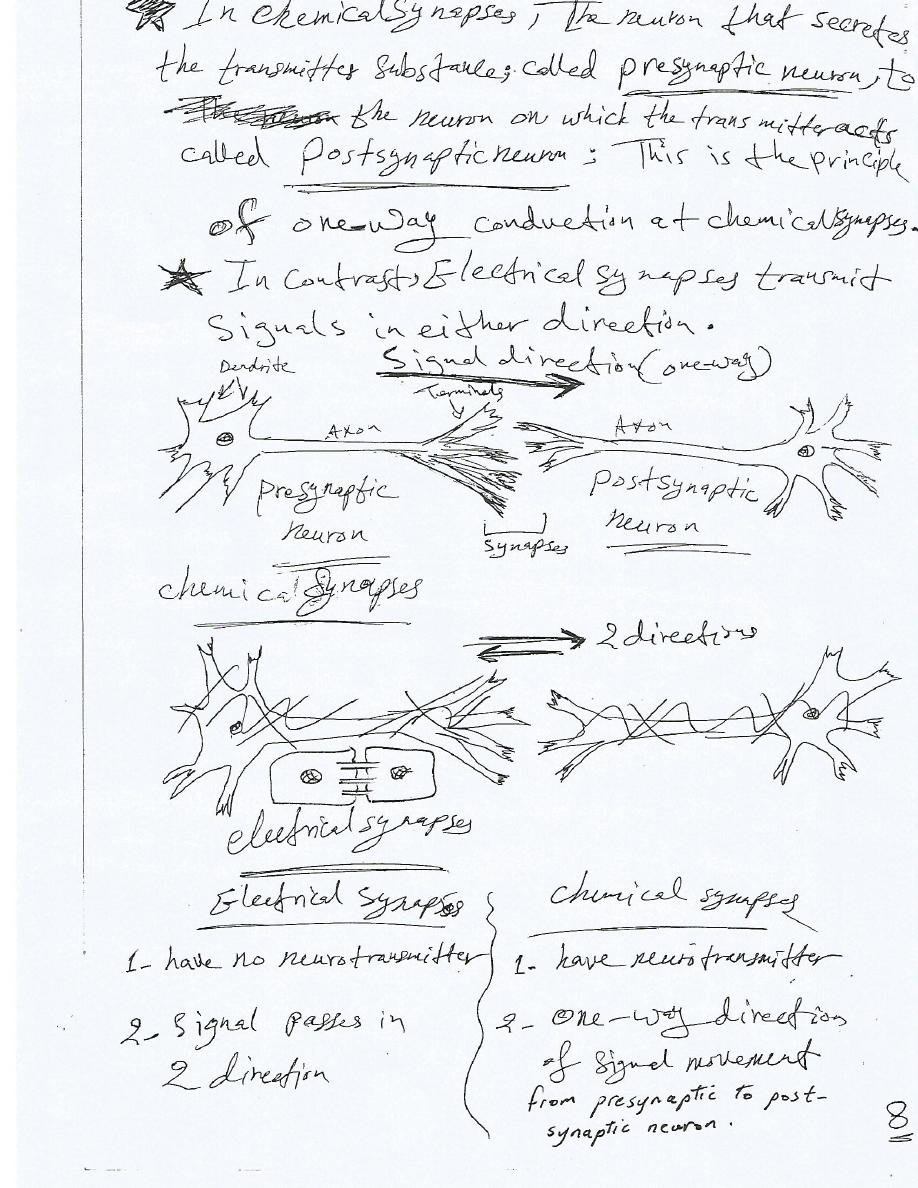 In chemical synapses, The neuron that secretes
the transmitter substance; called presynaptic neuron, to
the neuron on which the transmitter acts
called Postsynaptic neuron : This is the principle
of one-way conduction at chemical synapses.
In Contrast, Electrical synapses transmit
Signals in either direction.
Signal direction (one-way)
Dendrite
Terminals
Axon
Axon
presynaptic
neuron
postsynaptic
neuron
Synapses
chemical Synapses
2 directions
electrical synapses
Electrical Synapses
1- have no neurotransmitter
2- Signal passes in
2 direction
Chemical synapses
1- have neurotransmitter
2- one-way direction
of signal movement
from presynaptic to post-
synaptic neuron.
8